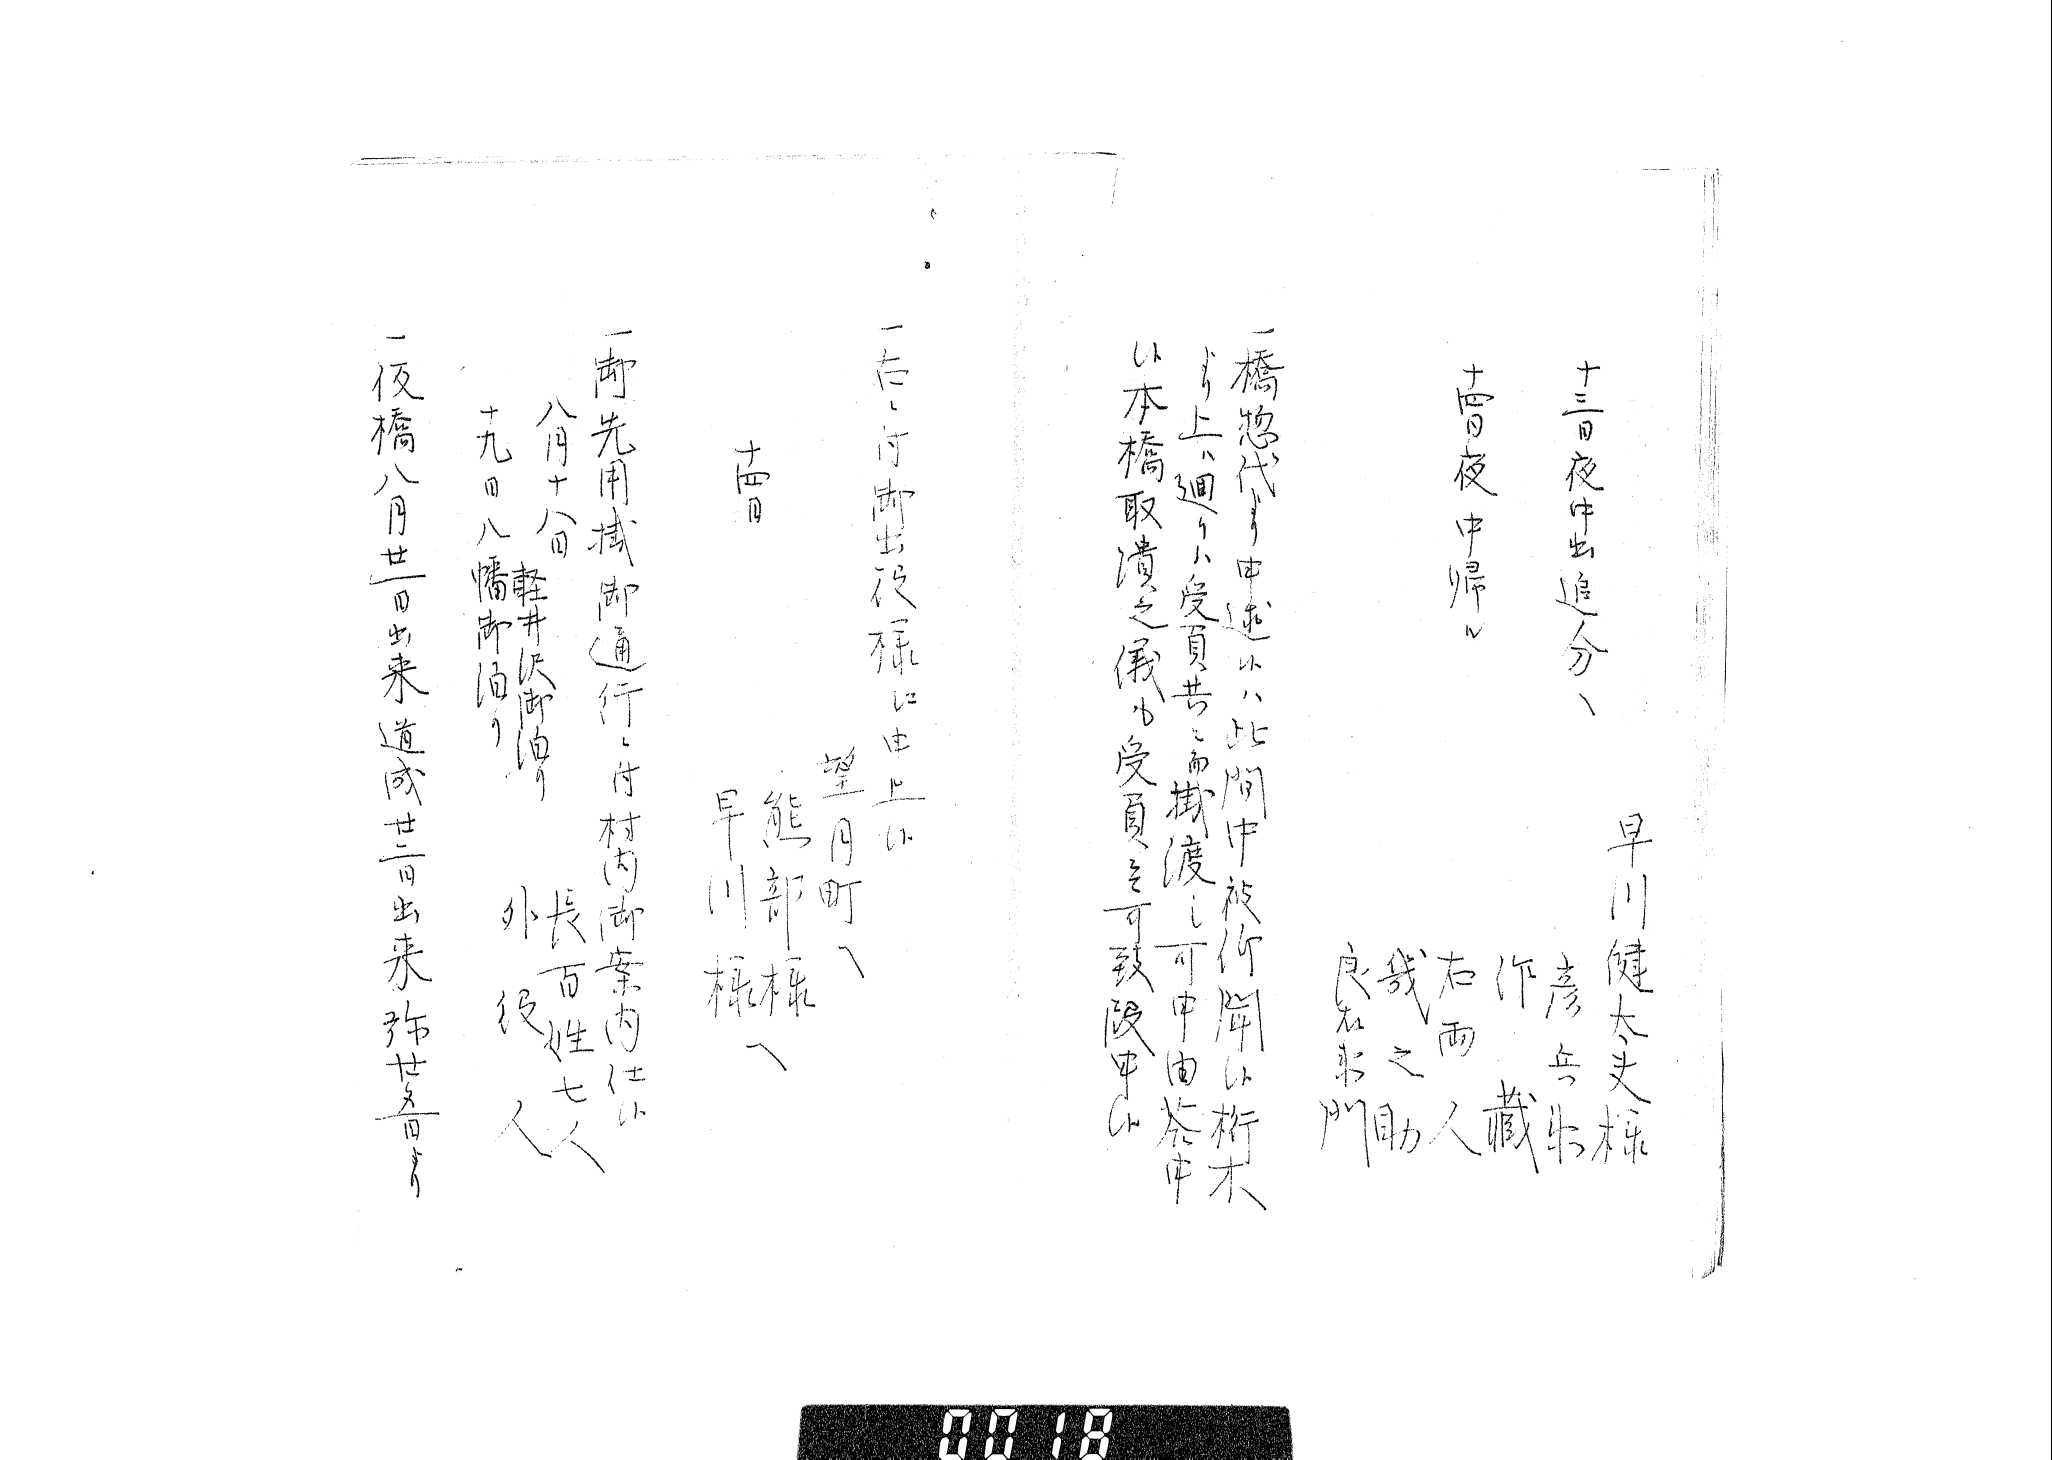 早川健太夫様
十三日夜中出追分へ
彦兵衛
作蔵
十四日夜中帰ル
右両人
幾之助
良右衛門
一橋惣代より申述候ハ此間中被仰聞候桁木
より上ハ廻りハ受負共ニ而掛渡し可申由答申
候本橋取潰之儀も受負ニ而可致段申候
一右ニ付御出役様江申上候
望月町へ
熊部様
十四日
早川様へ
一御先用掛御通行ニ付村内御案内仕候
八月十八日
軽井沢御泊り
長百姓七人
十九日八幡御泊り
外役人
一仮橋八月廿一日出来道成廿二日出来弥廿五日より
0018